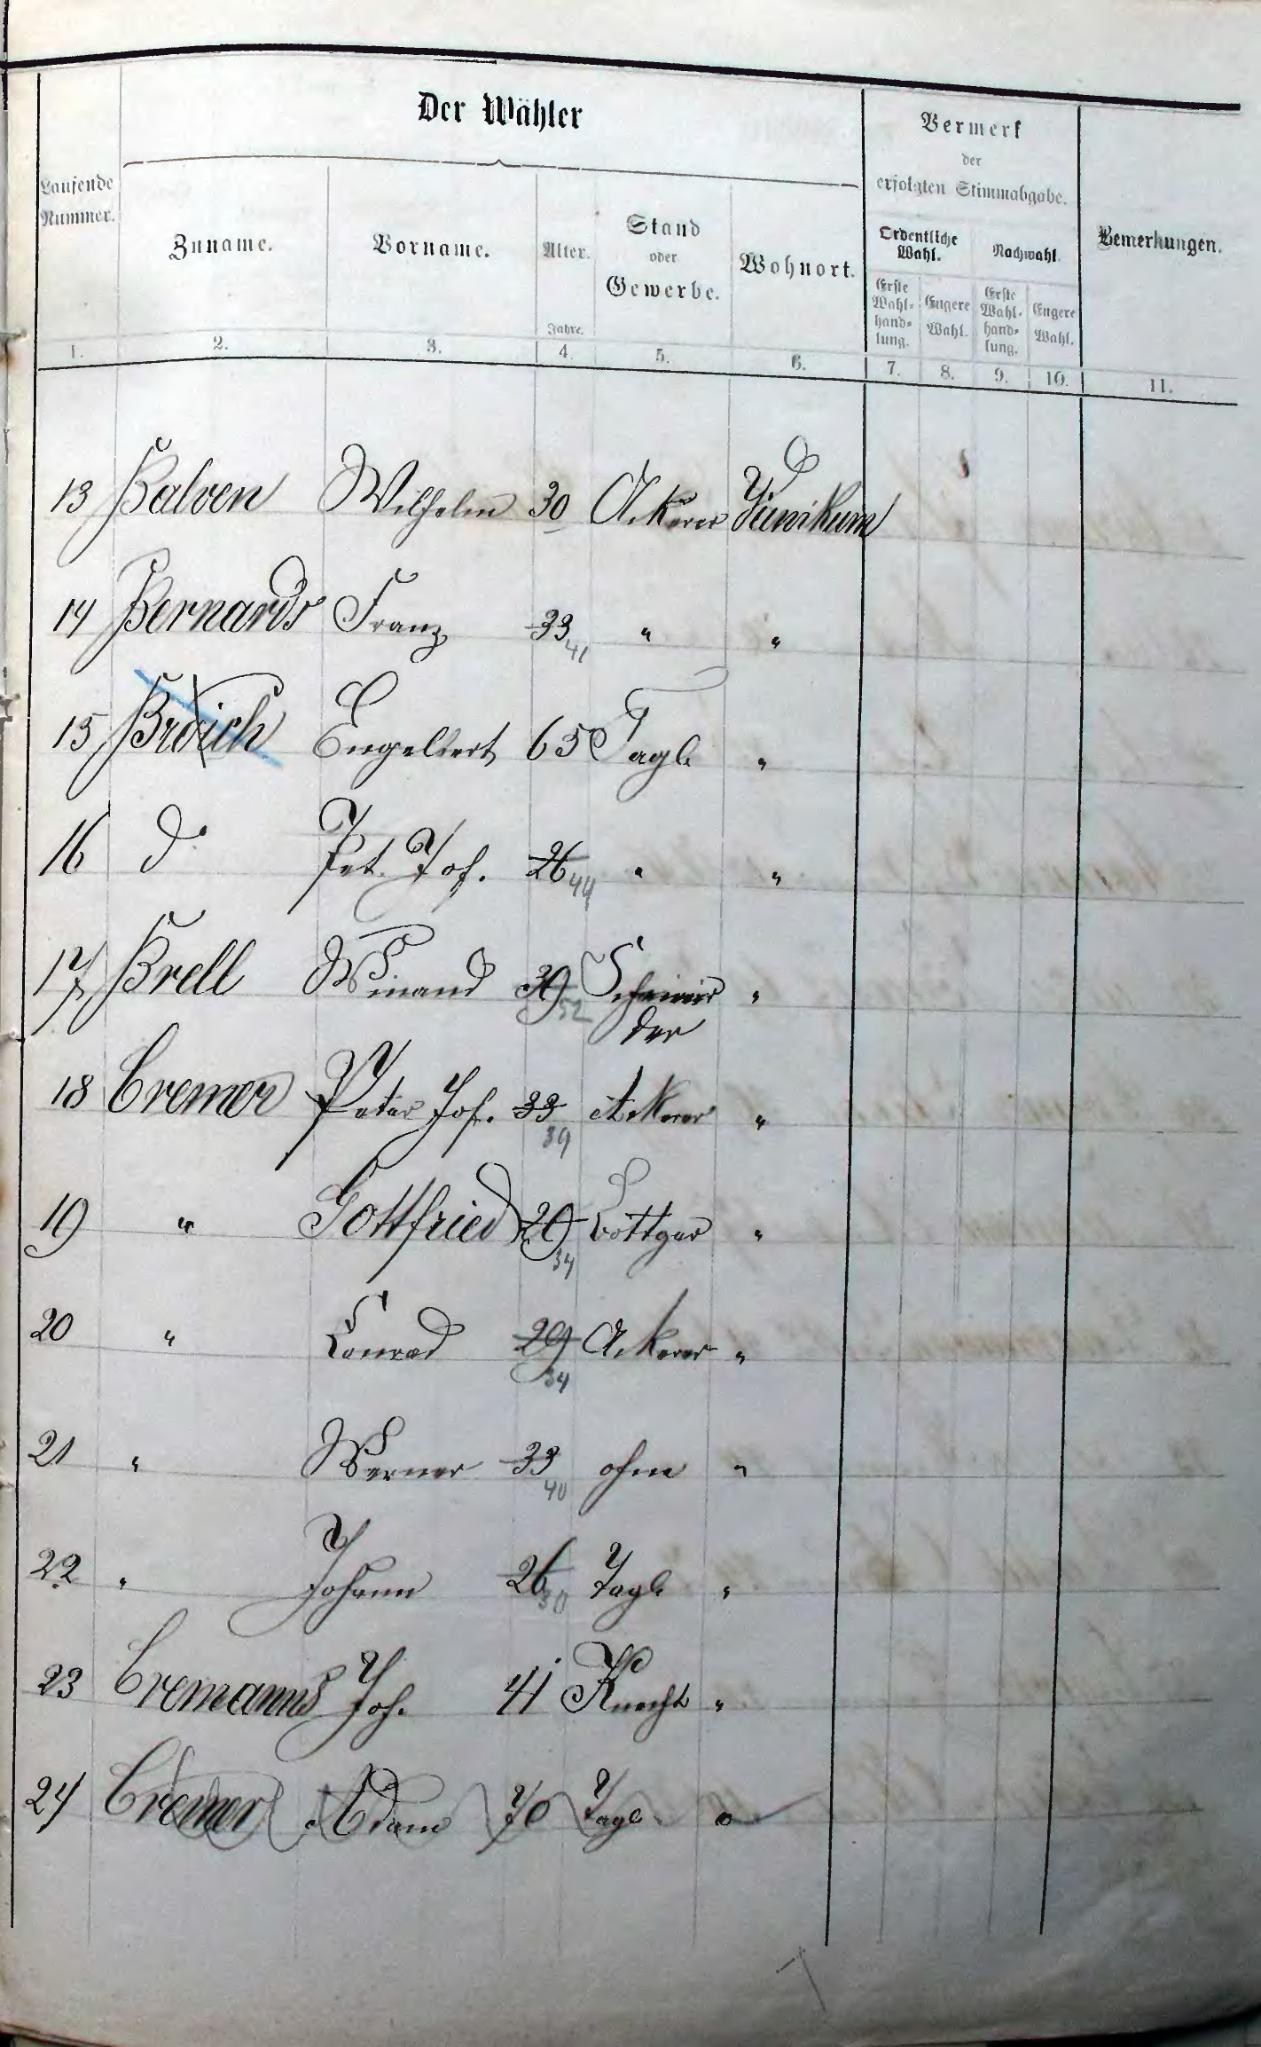 Der Wähler
Vermerk
der
erfolgten Stimmabgabe.
Laufende
Nummer.
Zuname.
Vorname.
Alter.
Jahre.
Stand
oder
Gewerbe.
Wohnort.
Ordentliche
Wahl.
Nachwahl.
Erste
Wahl-
hand-
lung.
Engere
Wahl.
Erste
Wahl-
hand-
lung.
Engere
Wahl.
Bemerkungen.
1. 2. 3. 4. 5. 6. 7. 8. 9. 10. 11.
13 Balven Wilhelm 30 Ackerer Jünikum
14 Bernards Franz 33 41 " "
15 Broich Engelbert 65 Tagl. "
16 do Pet. Jos. 26 44 " "
17 Brell Winand 39 52 Schneider "
18 Cremer Peter Jos. 33 39 Ackerer "
19 " Gottfried 29 34 "
20 " Conrad 29 34 Ackerer "
21 " Werner 33 40 ohne "
22 " Johann 26 30 Tagl. "
23 Cremanns Joh. 41 Knecht "
24 Cremer Adam 70 Tagl. "